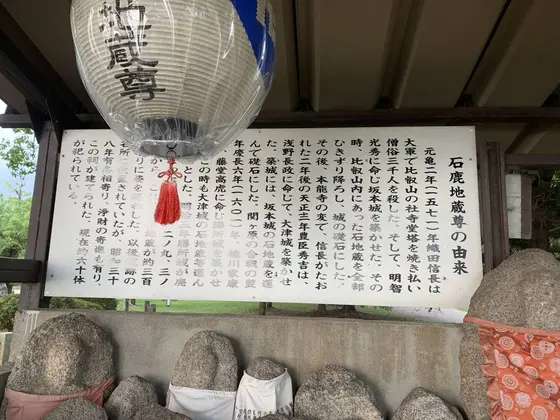 地蔵尊
石鹿地蔵尊の由来
元亀二年(一五七一)年織田信長は
大軍で比叡山の社寺堂塔を焼き払い
僧俗三千人を殺した。そして、明智
光秀に命じ坂本城を築かせた。その
時、比叡山内にあった石地蔵を全部
ひきずり降ろし、城の礎石にした。
その後、本能寺の変で、信長がたお
れた二年後の天正十三年豊臣秀吉は
浅野長政に命じて、大津城を築かせ
た。築城には、坂本城の石地蔵を運
んで礎石にした。関ヶ原の合戦の翌
年慶長六年(一六〇一)、徳川家康
藤堂高虎に命じ膳所城を築かせ
この時も大津城の石地蔵を運ん
とした。
二ノ丸、三ノ
膳所城が廃
地蔵が約三百
以後
跡の
されていたが、昭和三十
八年有志相寄り、浄財の寄進も有り、
この祠が建てられた。現在約六十体
が祀られている。